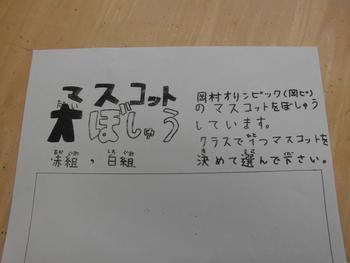 マスコット
大ぼしゅう
赤組、白組
岡村オリンピック(岡ピ)
のマスコットをぼしゅう
しています。
クラスで1つマスコットを
決めて選んで下さい。